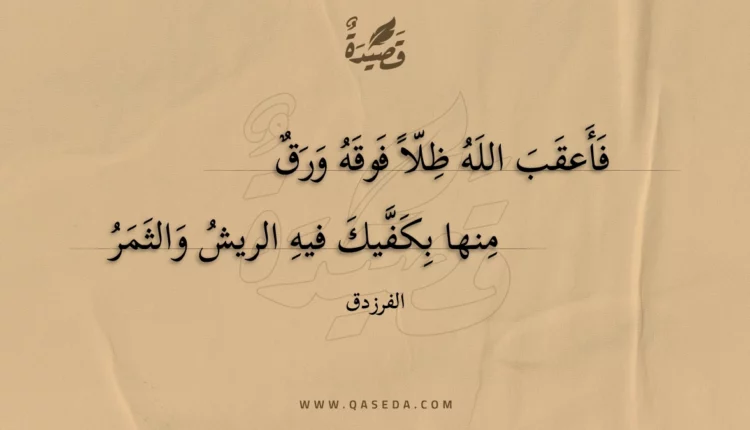 قَصِيدَةٌ
فَأَعقَبَ اللَهُ ظِلّاً فَوقَهُ وَرَقٌ
مِنها بِكَفَّيكَ فيهِ الريشُ وَالثَمَرُ
الفرزدق
WWW.QASEDA.COM